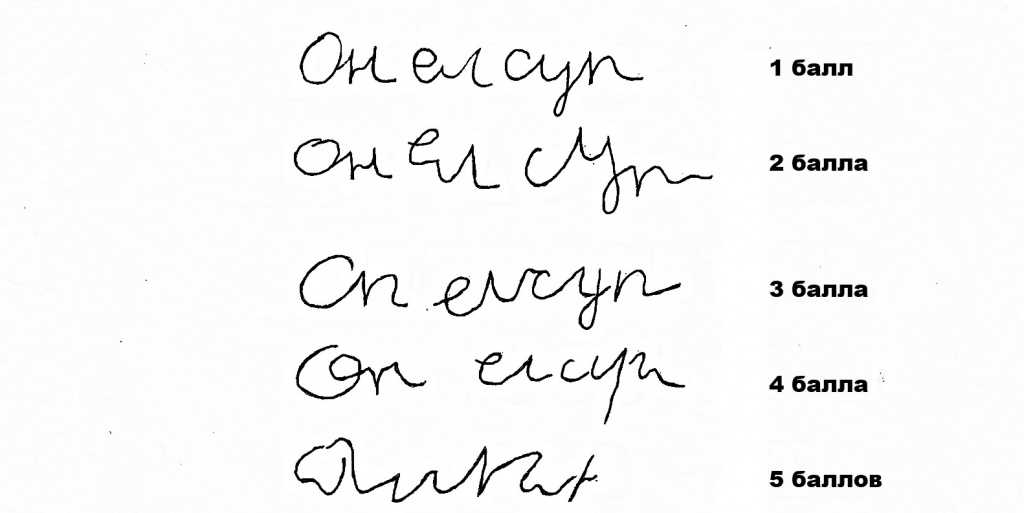 Он ел суп 1 балл
Он ел суп 2 балла
Он ел суп 3 балла
Он ел суп 4 балла
5 баллов